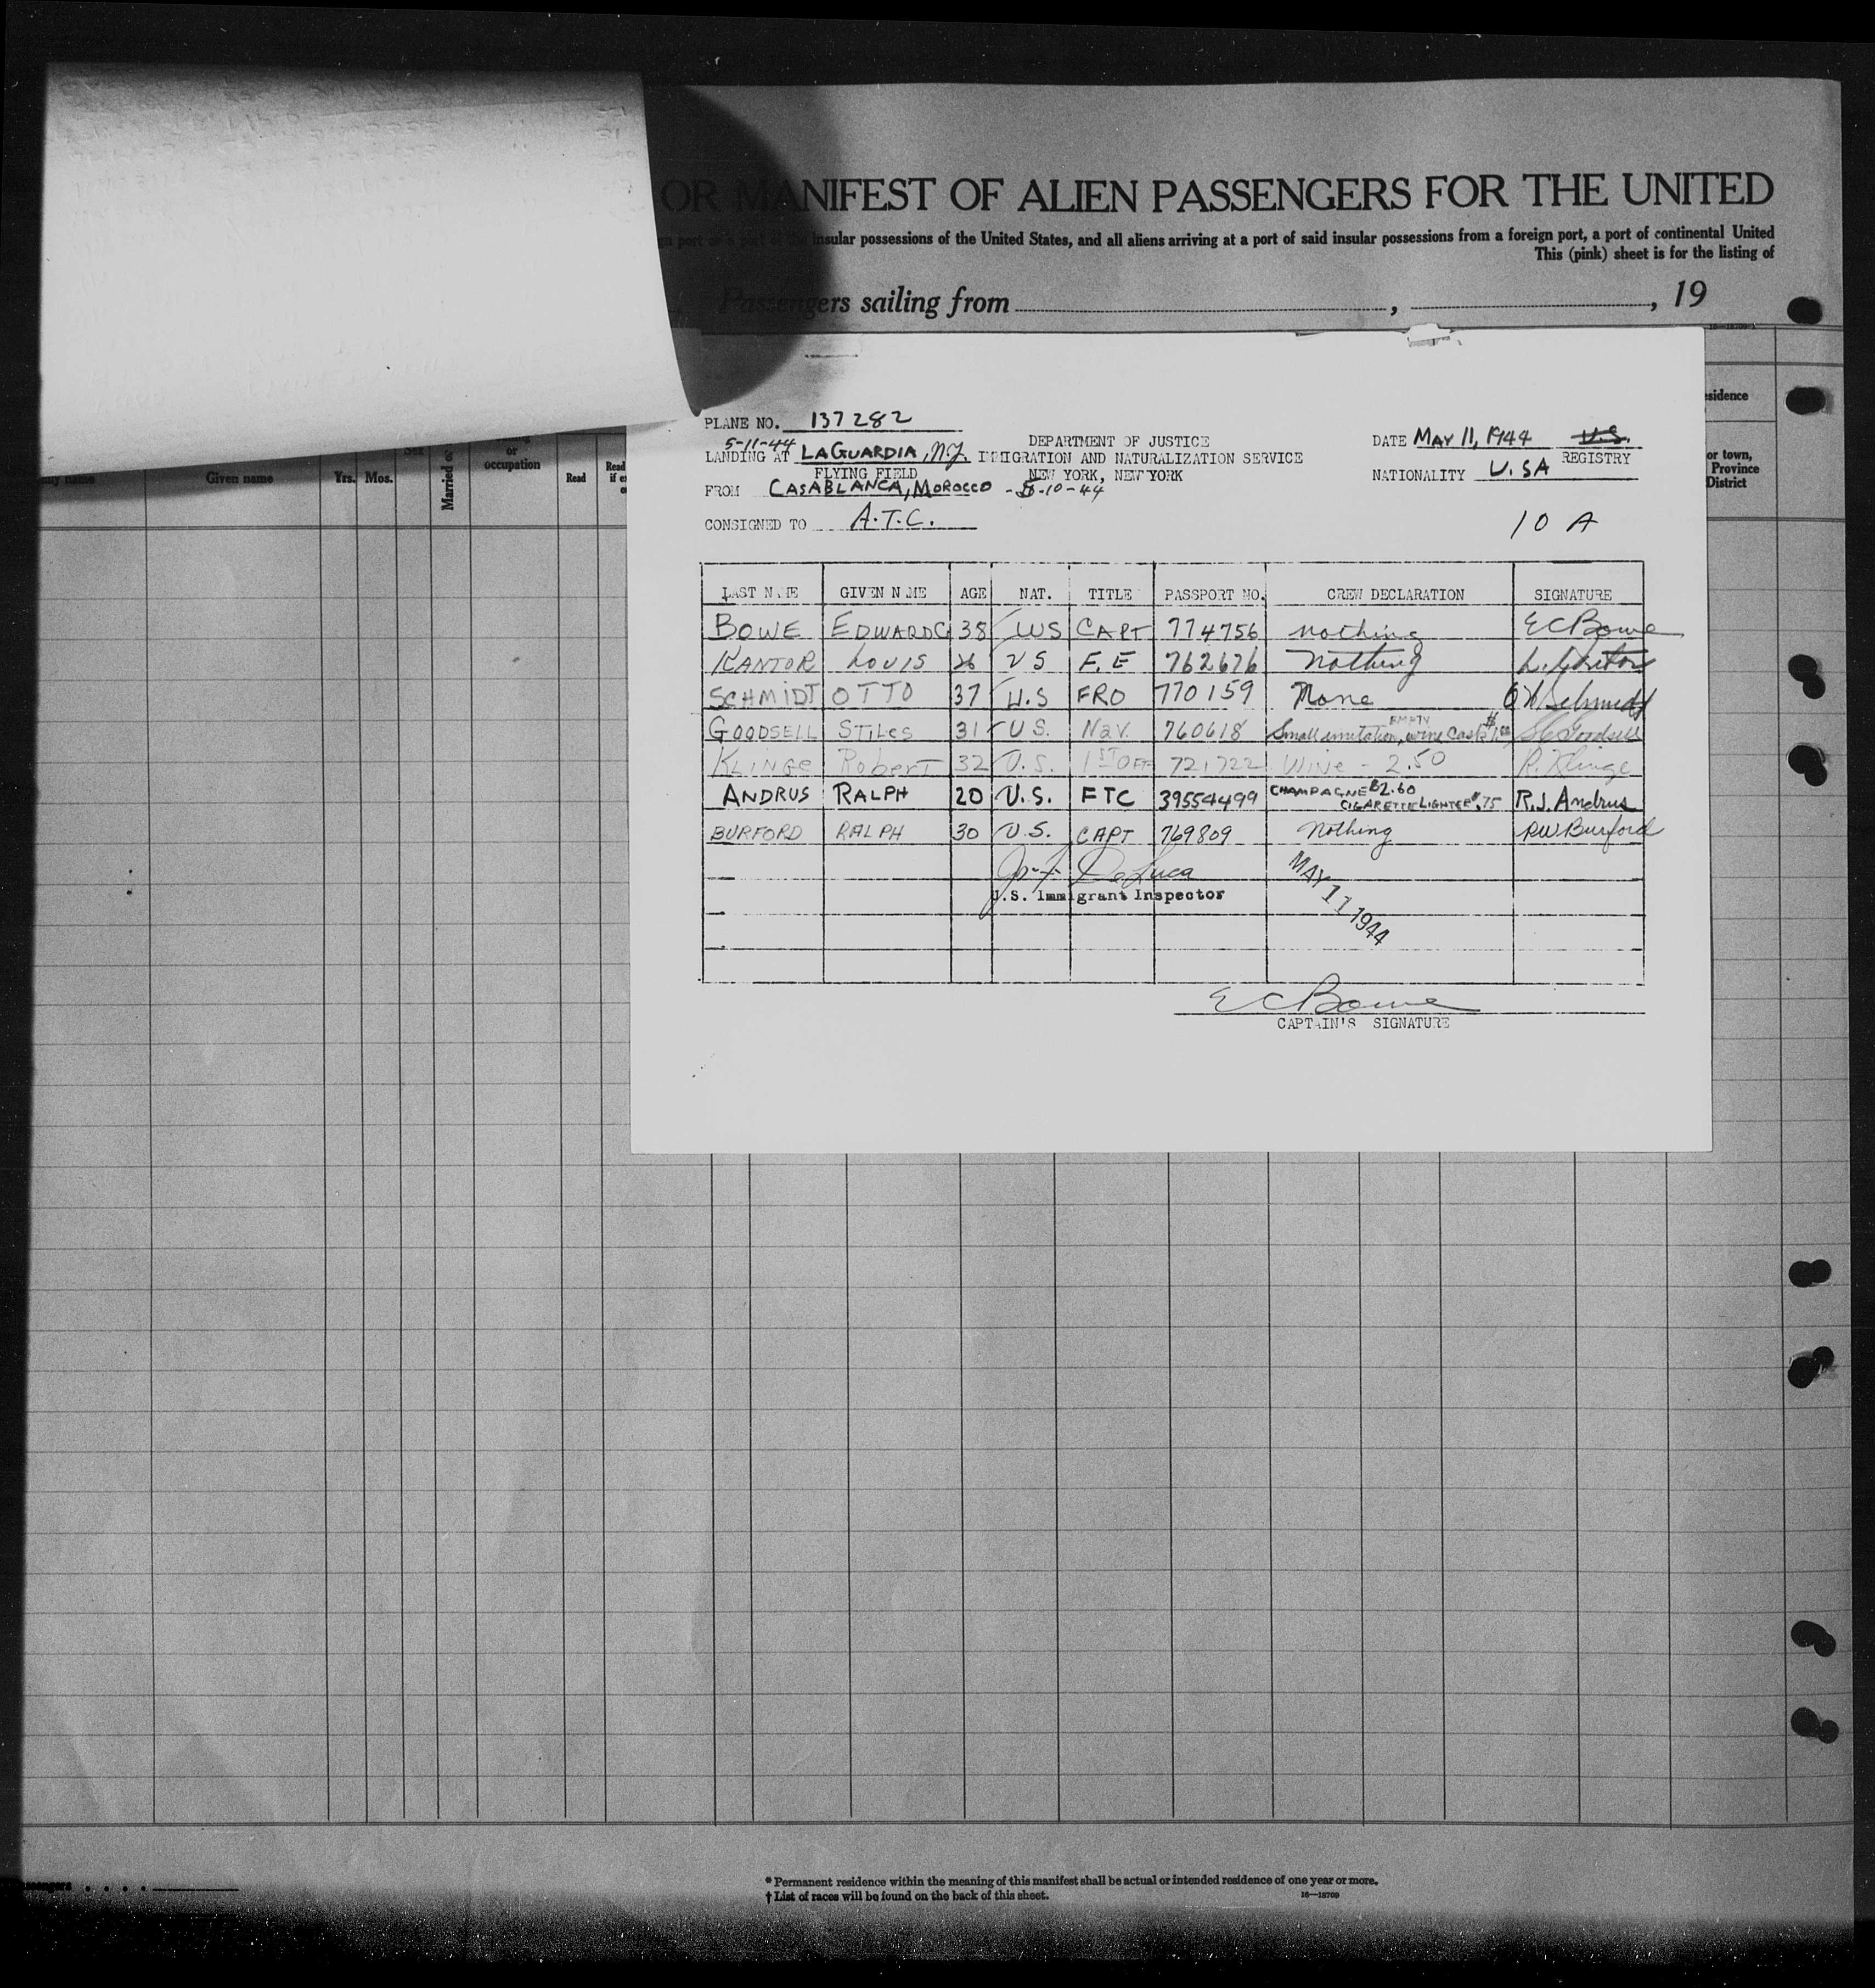 OR MANIFEST OF ALIEN PASSENGERS FOR THE UNITED
insular possessions of the United States, and all aliens arriving at a port of said insular possessions from a foreign port, a port of continental United
This (pink) sheet is for the listing of
Passengers sailing from , , 19
PLANE NO. 137282
5-11-44
LANDING AT LAGUARDIA, N.Y.
FLYING FIELD
FROM CASABLANCA, MOROCCO - 5-10-44
CONSIGNED TO A.T.C.
DEPARTMENT OF JUSTICE
IMMIGRATION AND NATURALIZATION SERVICE
NEW YORK, NEW YORK
DATE MAY 11, 1944 U.S.
REGISTRY
NATIONALITY U.SA
10 A
LAST NAME GIVEN NAME AGE NAT. TITLE PASSPORT NO. CREW DECLARATION SIGNATURE
BOWE EDWARD C 38 US CAPT 774756 nothing E C Bowe
KANTOR LOUIS 26 US F.E 762676 nothing L. Kantor
SCHMIDT OTTO 37 U.S FRO 770159 None O W Schmidt
GOODSELL STILES 31 U.S. Nav. 760618 Small imitation, EMPTY wine cask $1.00 S Goodsell
KLINGE Robert 32 U.S. 1ST OFF 721722 Wine - 2.50 R. Klinge
ANDRUS RALPH 20 U.S. FTC 39554499 CHAMPAGNE $2.60 CIGARETTE LIGHTER $.75 R.J. Andrus
BURFORD RALPH 30 U.S. CAPT 769809 Nothing RW Burford
De Luca
U.S. Immigrant Inspector
MAY 11 1944
E C Bowe
CAPTAIN'S SIGNATURE
Given name
Yrs. Mos.
Sex
or
occupation
Read
or town,
Province
District
* Permanent residence within the meaning of this manifest shall be actual or intended residence of one year or more.
† List of races will be found on the back of this sheet.
16—18709